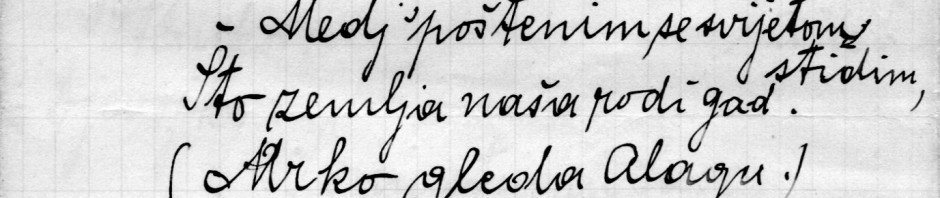 - Medj' poštenim se svijetom stidim,
Što zemlja naša rodi gad.
(Mrko gleda Alagu.)